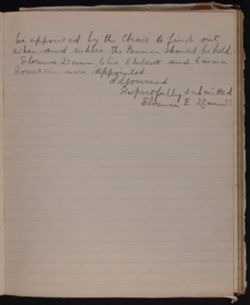 be appointed by the Chair to find out
when and where the Banner should be held.
Florence Dunn, Elsie and Emma
were appointed
Adjourned
Respectfully submitted
Florence E.